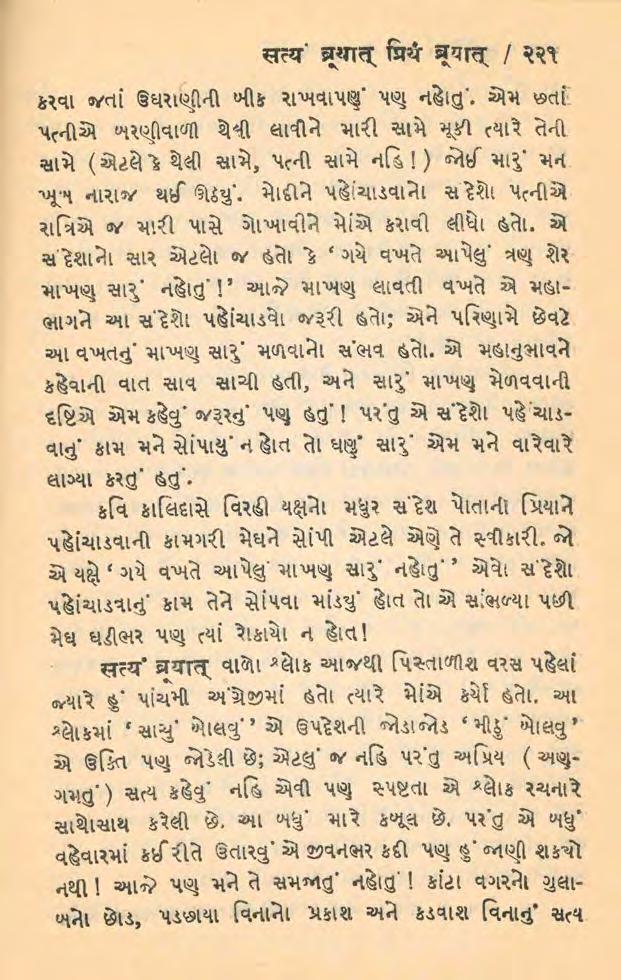 सत्यं ब्रूयात् प्रियं ब्रूयात् / ૨૨૧
કરવા જતાં ઉઘરાણીની બીક રાખવાપણું પણ નહોતું. એમ છતાં
પત્નીએ બરણીવાળી થેલી લાવીને મારી સામે મૂકી ત્યારે તેની
સામે (એટલે કે થેલી સામે, પત્ની સામે નહિ!) જોઈ મારું મન
ખૂબ નારાજ થઈ ઊઠ્યું. મોદીને પહોંચાડવાનો સંદેશો પત્નીએ
રાત્રિએ જ મારી પાસે ગોખાવીને મોંએ કરાવી લીધો હતો. એ
સંદેશાનો સાર એટલો જ હતો કે ‘ગયે વખતે આપેલું ત્રણ શેર
માખણ સારું નહોતું!’ આજે માખણ લાવતી વખતે એ મહા-
ભાગને આ સંદેશો પહોંચાડવો જરૂરી હતો; એને પરિણામે છેવટે
આ વખતનું માખણ સારું મળવાનો સંભવ હતો. એ મહાનુભાવને
કહેવાની વાત સાવ સાચી હતી, અને સારું માખણ મેળવવાની
દૃષ્ટિએ એમ કહેવું જરૂરનું પણ હતું! પરંતુ એ સંદેશો પહોંચાડ-
વાનું કામ મને સોંપાયું ન હોત તો ઘણું સારું એમ મને વારેવારે
લાગ્યા કરતું હતું.
કવિ કાલિદાસે વિરહી યક્ષનો મધુર સંદેશ પોતાની પ્રિયાને
પહોંચાડવાની કામગરી મેઘને સોંપી એટલે એણે તે સ્વીકારી. જો
એ યક્ષે ‘ગયે વખતે આપેલું માખણ સારું નહોતું’ એવો સંદેશો
પહોંચાડવાનું કામ તેને સોંપવા માંડ્યું હોત તો એ સાંભળ્યા પછી
મેઘ ઘડીભર પણ ત્યાં રોકાયો ન હોત!
सत्यं ब्रूयात् વાળો શ્લોક આજથી પિસ્તાળીશ વરસ પહેલાં
જ્યારે હું પાંચમી અંગ્રેજીમાં હતો ત્યારે મોંએ કર્યો હતો. આ
શ્લોકમાં ‘સાચું બોલવું’ એ ઉપદેશની જોડાજોડ ‘મીઠું બોલવું’
એ ઉક્તિ પણ જોડેલી છે; એટલું જ નહિ પરંતુ અપ્રિય (અણ-
ગમતું) સત્ય કહેવું નહિ એવી પણ સ્પષ્ટતા એ શ્લોક રચનારે
સાથોસાથ કરેલી છે. આ બધું મારે કબૂલ છે. પરંતુ એ બધું
વહેવારમાં કઈ રીતે ઉતારવું એ જીવનભર કદી પણ હું જાણી શક્યો
નથી! આજે પણ મને તે સમજાતું નહોતું! કાંટા વગરનો ગુલા-
બનો છોડ, પડછાયા વિનાનો પ્રકાશ અને કડવાશ વિનાનું સત્ય